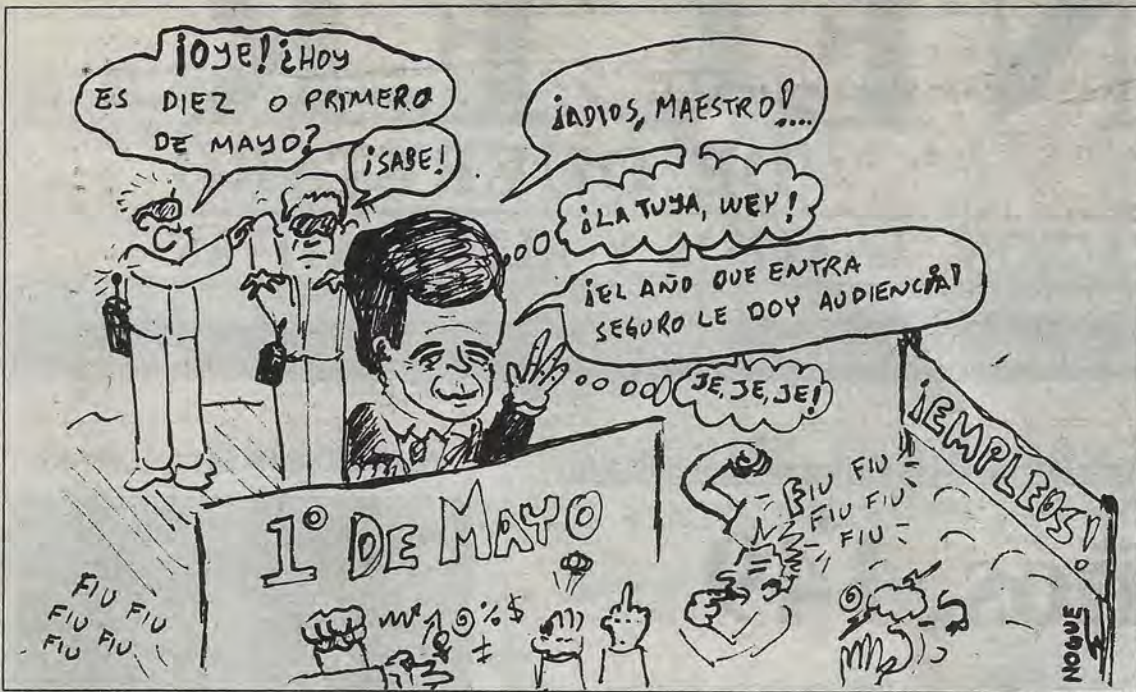 ¡OYE! ¿HOY
ES DIEZ O PRIMERO
DE MAYO?
¡SABE!
¡ADIOS, MAESTRO!....
¡LA TUYA, WEY!
¡EL AÑO QUE ENTRA
SEGURO LE DOY AUDIENCIA!
JE, JE, JE!
¡EMPLEOS!
1º DE MAYO
FIU FIU
FIU FIU
FIU
FIU FIU
FIU FIU
FIU
@%$
NOGUE